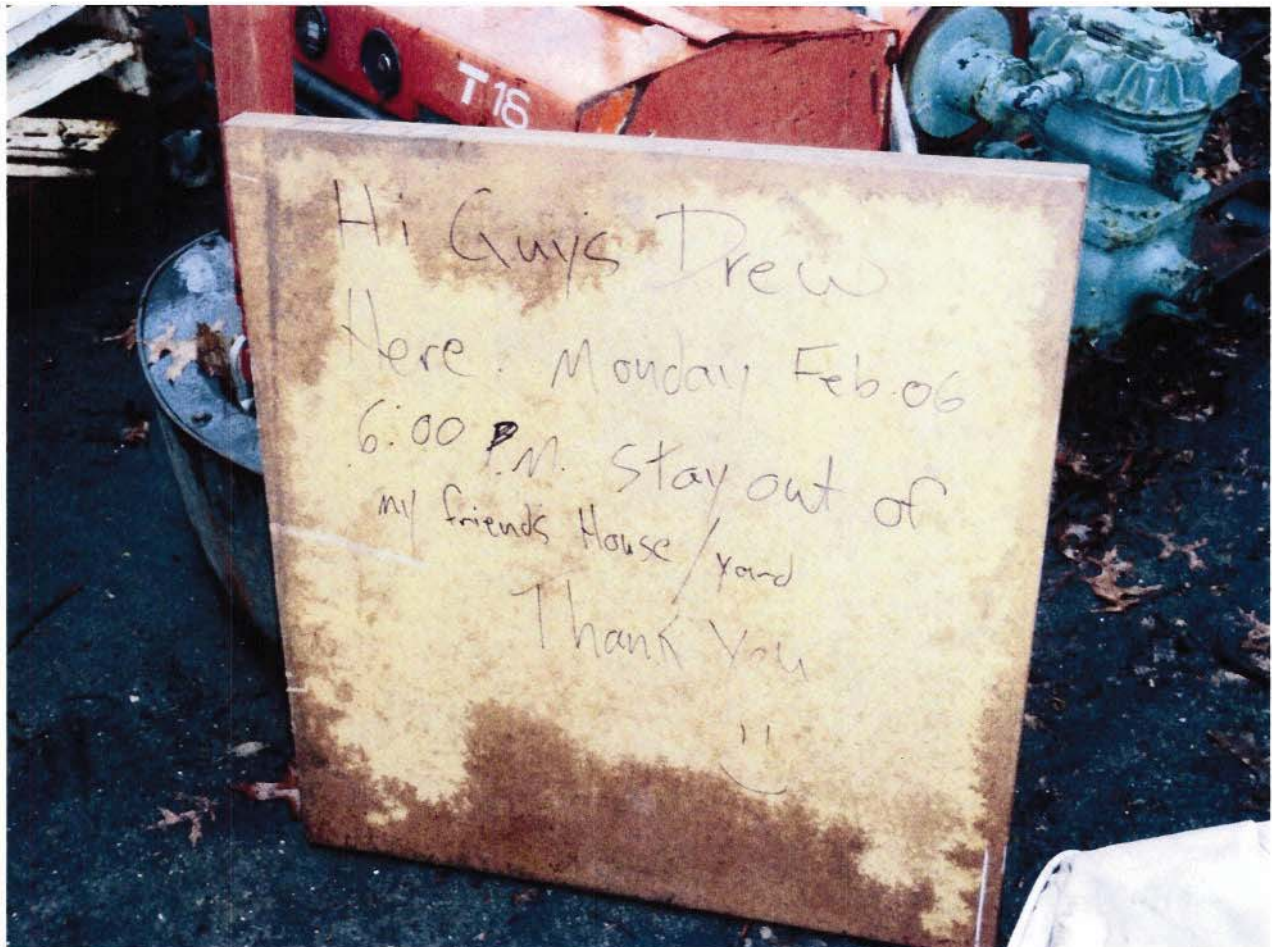 T16
Hi Guys Drew
Here. Monday Feb.06
6:00 P.M. stay out of
my friends House/yard
Thank You